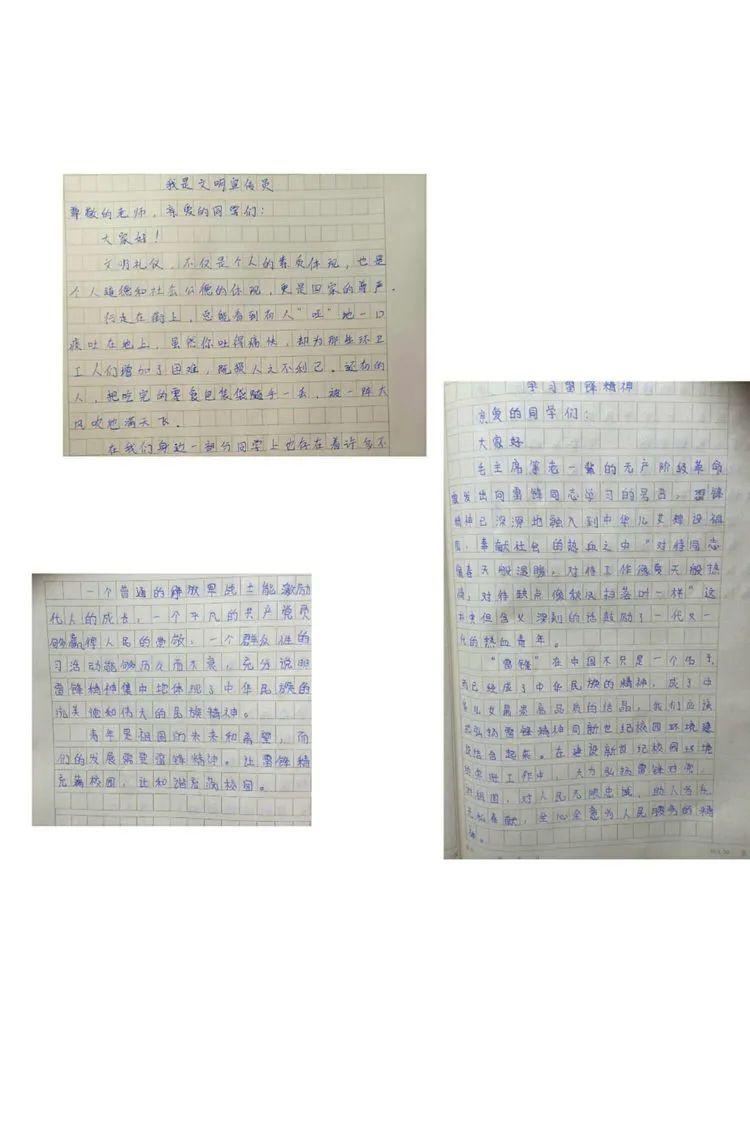 我是文明宣传员
尊敬的老师，亲爱的同学们：
大家好！
文明礼仪，不仅是个人的素质体现，也是
个人道德和社会公德的体现，更是国家的尊严。
行走在街上，总能看到有人“呸”地一口
痰吐在地上，虽然你吐得痛快，却为那些环卫
工人们增加了困难，既损人又不利己。还有的
人，把吃完的零食包装袋随手一丢，被一阵大
风吹地满天飞。
在我们身边一部分同学上也存在着许多不
学习雷锋精神
亲爱的同学们：
大家好
毛主席等老一辈的无产阶级革命
家发出向雷锋同志学习的号召，雷锋
精神已深深地融入到中华儿女建设祖
国，奉献社会的热血之中“对待同志
像春天般温暖，对待工作像夏天般热
情，对待缺点像秋风扫落叶一样”这
朴实但含义深刻的话鼓励了一代又一
代的热血青年。
“雷锋”在中国不只是一个名字，
而已经成了中华民族的精神，成了中
华儿女最崇高品质的结晶，我们应该
把弘扬雷锋精神同新世纪校园环境建
设结合起来。在建设新世纪校园环境
工作中，大力弘扬雷锋对党，
对祖国，对人民无限忠诚，助人为乐
无私奉献，全心全意为人民服务的精
神。
一个普通的解放军战士能激励
代人的成长，一个平凡的共产党员
够赢得人民的崇敬，一个群众性的
习活动能够历久而不衰，充分说明
雷锋精神集中地体现了中华民族的
优美德和伟大的民族精神。
青年是祖国的未来和希望，而
们的发展需要雷锋精神。让雷锋精
充满校园，让和谐充满校园。